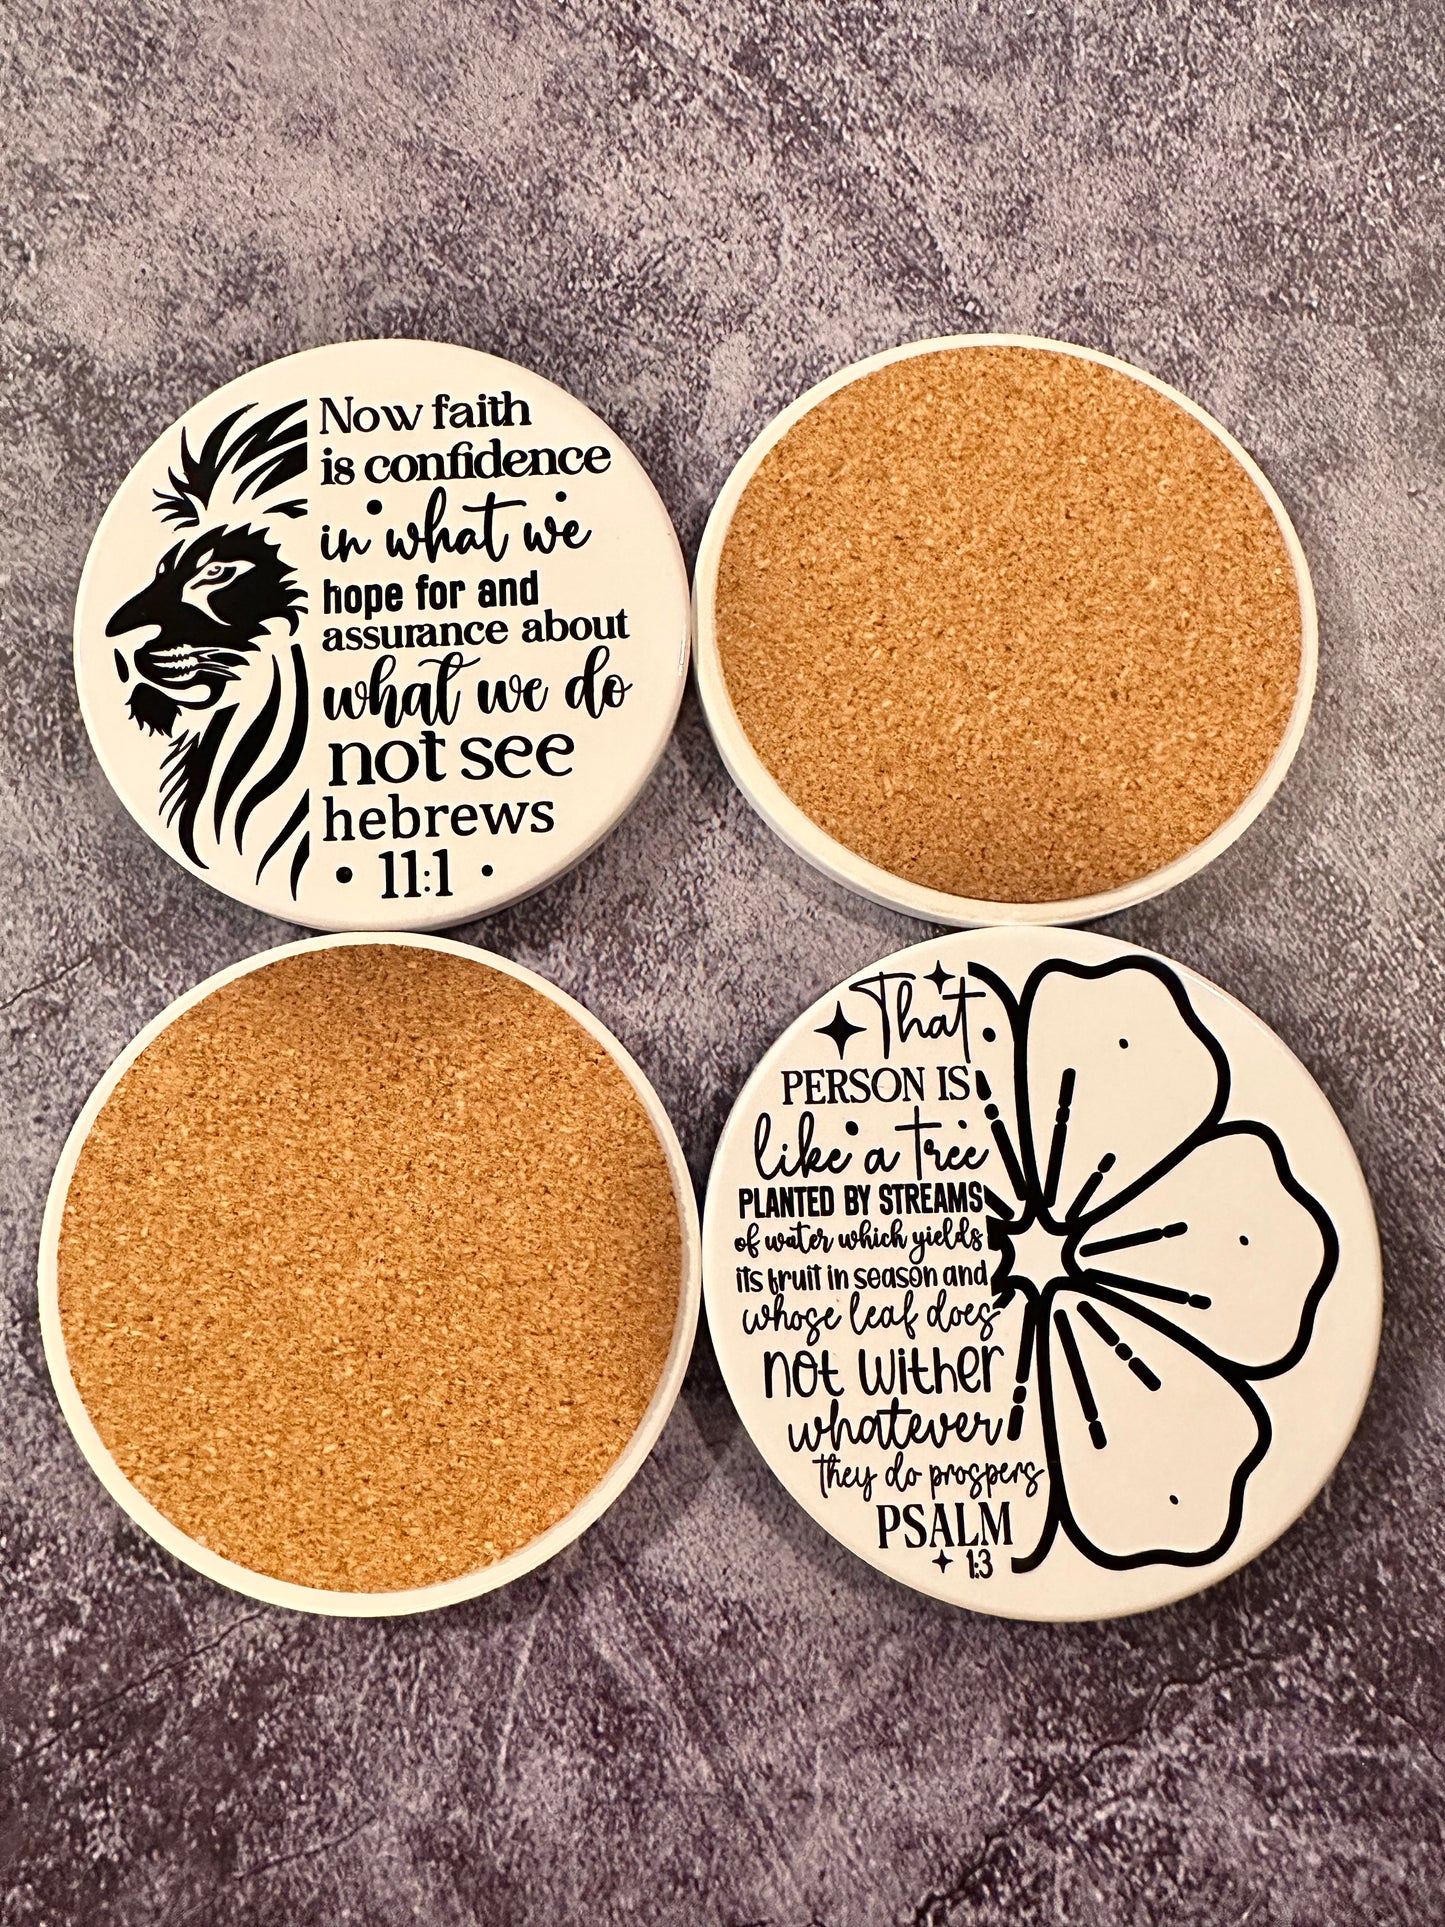 Now faith
is confidence
in what we
hope for and
assurance about
what we do
not see
hebrews
• 11:1 •
That
PERSON IS
like a tree
PLANTED BY STREAMS
of water which yields
its fruit in season and
whose leaf does
not wither
whatever
they do prospers
PSALM
1:3